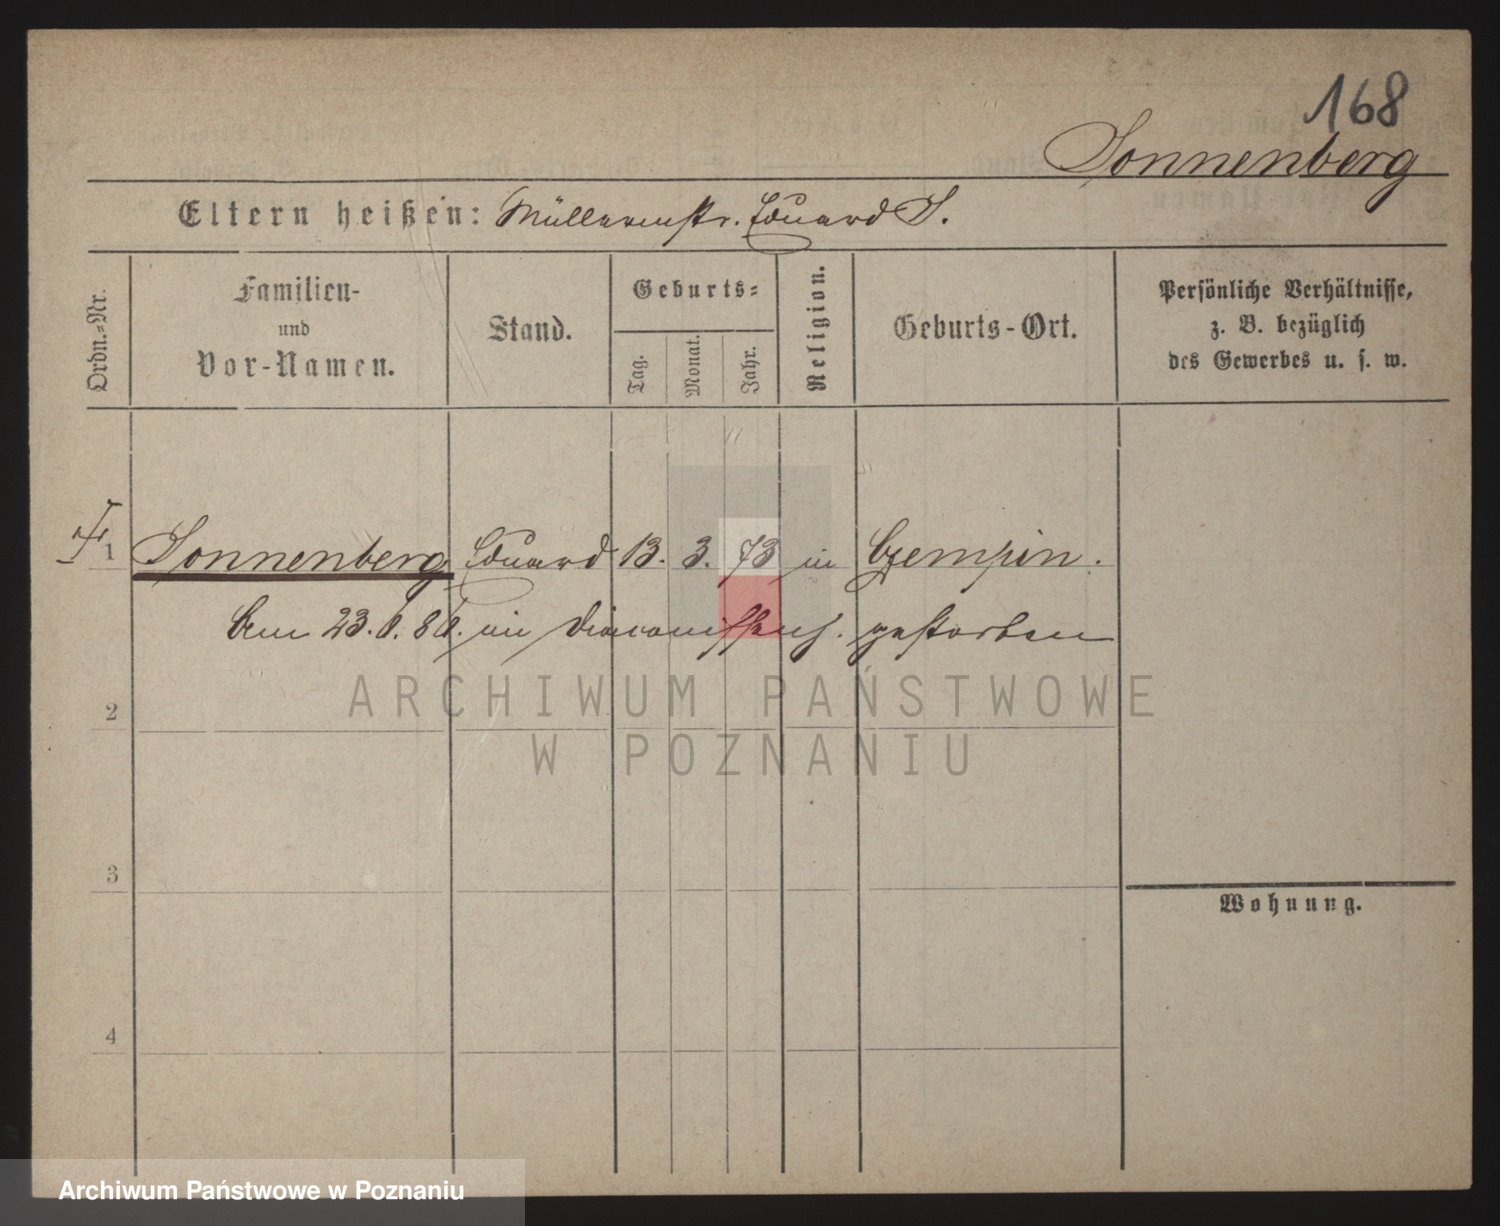 168
Sonnenberg
Eltern heißen: Müllermstr. Eduard S.
Ordn.-Nr.
Familien-
und
Vor-Namen.
Stand.
Geburts-
Tag.
Monat.
Jahr.
Religion.
Geburts-Ort.
Persönliche Verhältnisse,
z. B. bezüglich
des Gewerbes u. s. w.
1 Sonnenberg Eduard 13. 3. 73 in Czempin.
Am 23. 6. 86. im Diaconissenh. gestorben
ARCHIWUM PAŃSTWOWE
W POZNANIU
2
3
Wohnung.
4
Archiwum Państwowe w Poznaniu